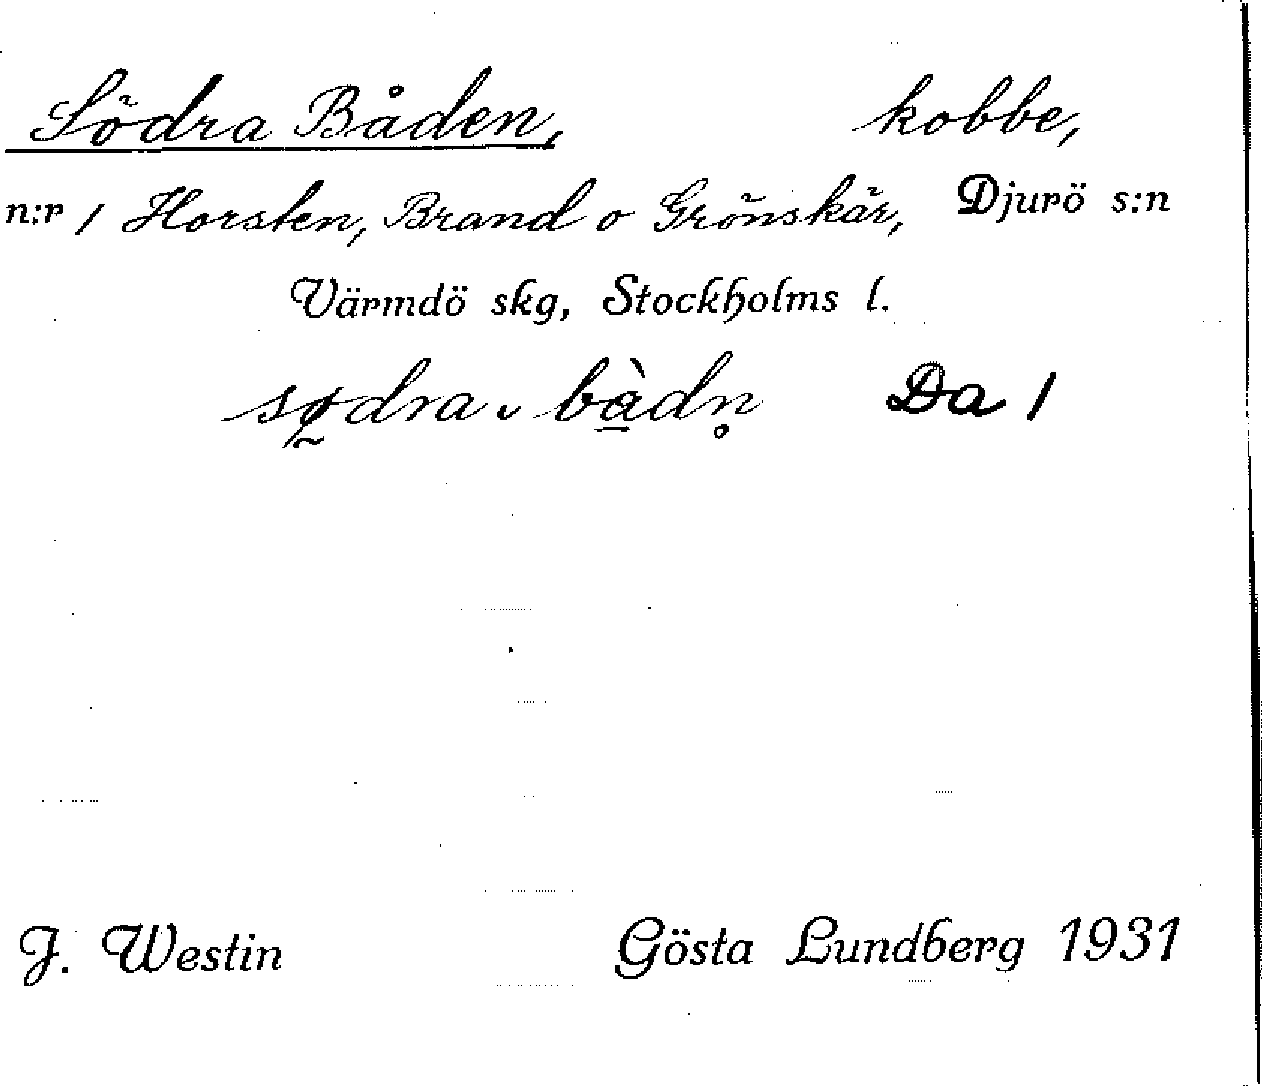 Södra Båden, kobbe,
n:r 1 Horsten, Brand o Grönskär, Djurö s:n
Värmdö skg, Stockholms l.
sø̰dra ˬ bà̱dn̥ Da 1
J. Westin Gösta Lundberg 1931